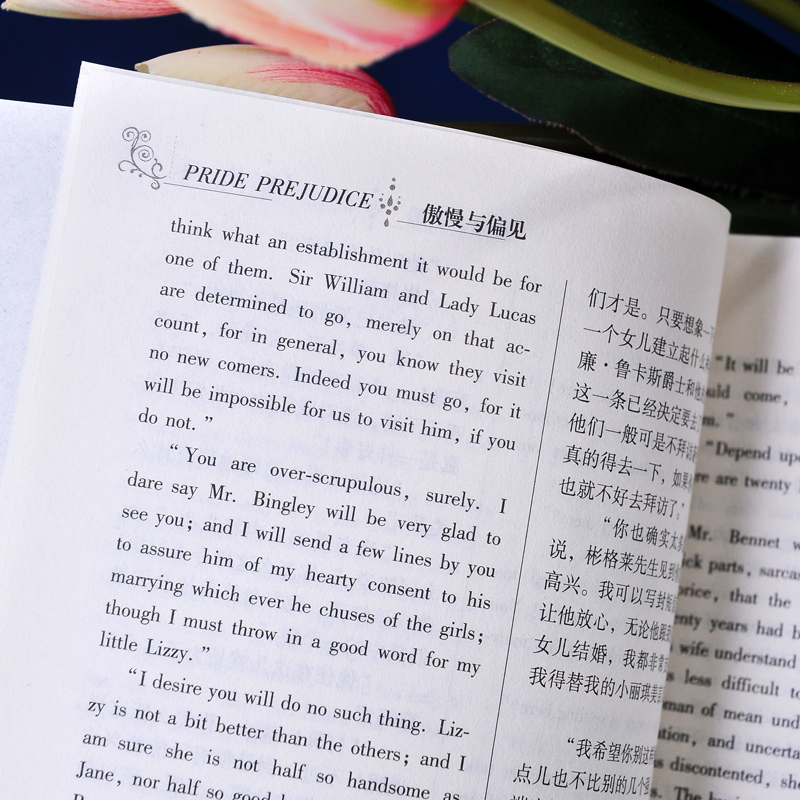 PRIDE PREJUDICE 傲慢与偏见
think what an establishment it would be for
one of them. Sir William and Lady Lucas
are determined to go, merely on that ac-
count, for in general, you know they visit
no new comers. Indeed you must go, for it
will be impossible for us to visit him, if you
do not. ”
“ You are over-scrupulous, surely. I
dare say Mr. Bingley will be very glad to
see you; and I will send a few lines by you
to assure him of my hearty consent to his
marrying which ever he chuses of the girls;
though I must throw in a good word for my
little Lizzy. ”
“I desire you will do no such thing. Liz-
zy is not a bit better than the others; and I
am sure she is not half so handsome as
Jane, nor half so good
们才是。只要想象一下
一个女儿建立起什么
廉·鲁卡斯爵士和他
这一条已经决定要去
他们一般可是不拜访
真的得去一下，如果
也就不好去拜访了。”
“你也确实太多
说，彬格莱先生见到
高兴。我可以写封
让他放心，无论他
女儿结婚，我都非常
我得替我的小丽琪美言
“我希望你别这
点儿也不比别的几个
“It will be
ould come,
“Depend upo
re are twenty
Mr. Bennet w
ck parts, sarca
rice, that the
nty years had b
wife understand
less difficult to
man of mean und
tion, and uncerta
s discontented, she